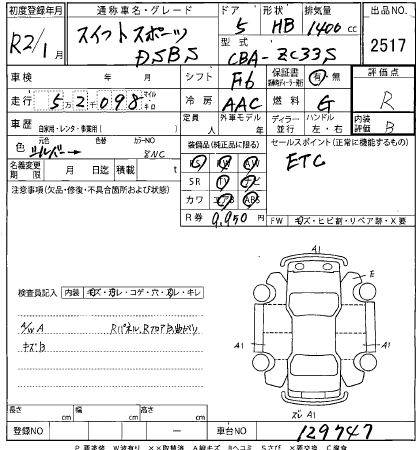 初度登録年月 通称車名・グレード ドア 形状 排気量 出品NO
R2/1月 スイフトスポーツ DSBS 5 HB 1400cc 2517
型式 CBA-ZC33S
車検 年 月 シフト F6 保証書 有・無 評価点 R
走行 52,098 マイル キロ 冷房 AAC 燃料 G
車歴 自家用・レンタ・事業用( ) 定員 人 外車モデル 年 ディーラー・並行 ハンドル 左・右 内装評価 B
色 元色 シルバー 色替 カラーNO
装備品(純正品に限る) セールスポイント(正常に機能するもの)
ETC
名義変更期限 月 日迄 積載 t
PS PW AW
SR TV ナビ
カワ エアB ABS
R券 9,950円
注意事項(欠品・修復・不具合箇所および状態)
FW キズ・ヒビ割・リペア跡・X要
検査員記入 内装 キズ・カレ・コゲ・穴・スレ・キレ
A/W A
キズB
Rパネル、RフロアB曲
A1
E
A1 A1
ズレ A1
長さ cm 幅 cm 高さ cm
登録NO ー 車台NO 129747
P要塗装 W波有り ××取替済 A線キズ Bヘコミ Sさび X要交換 C腐食